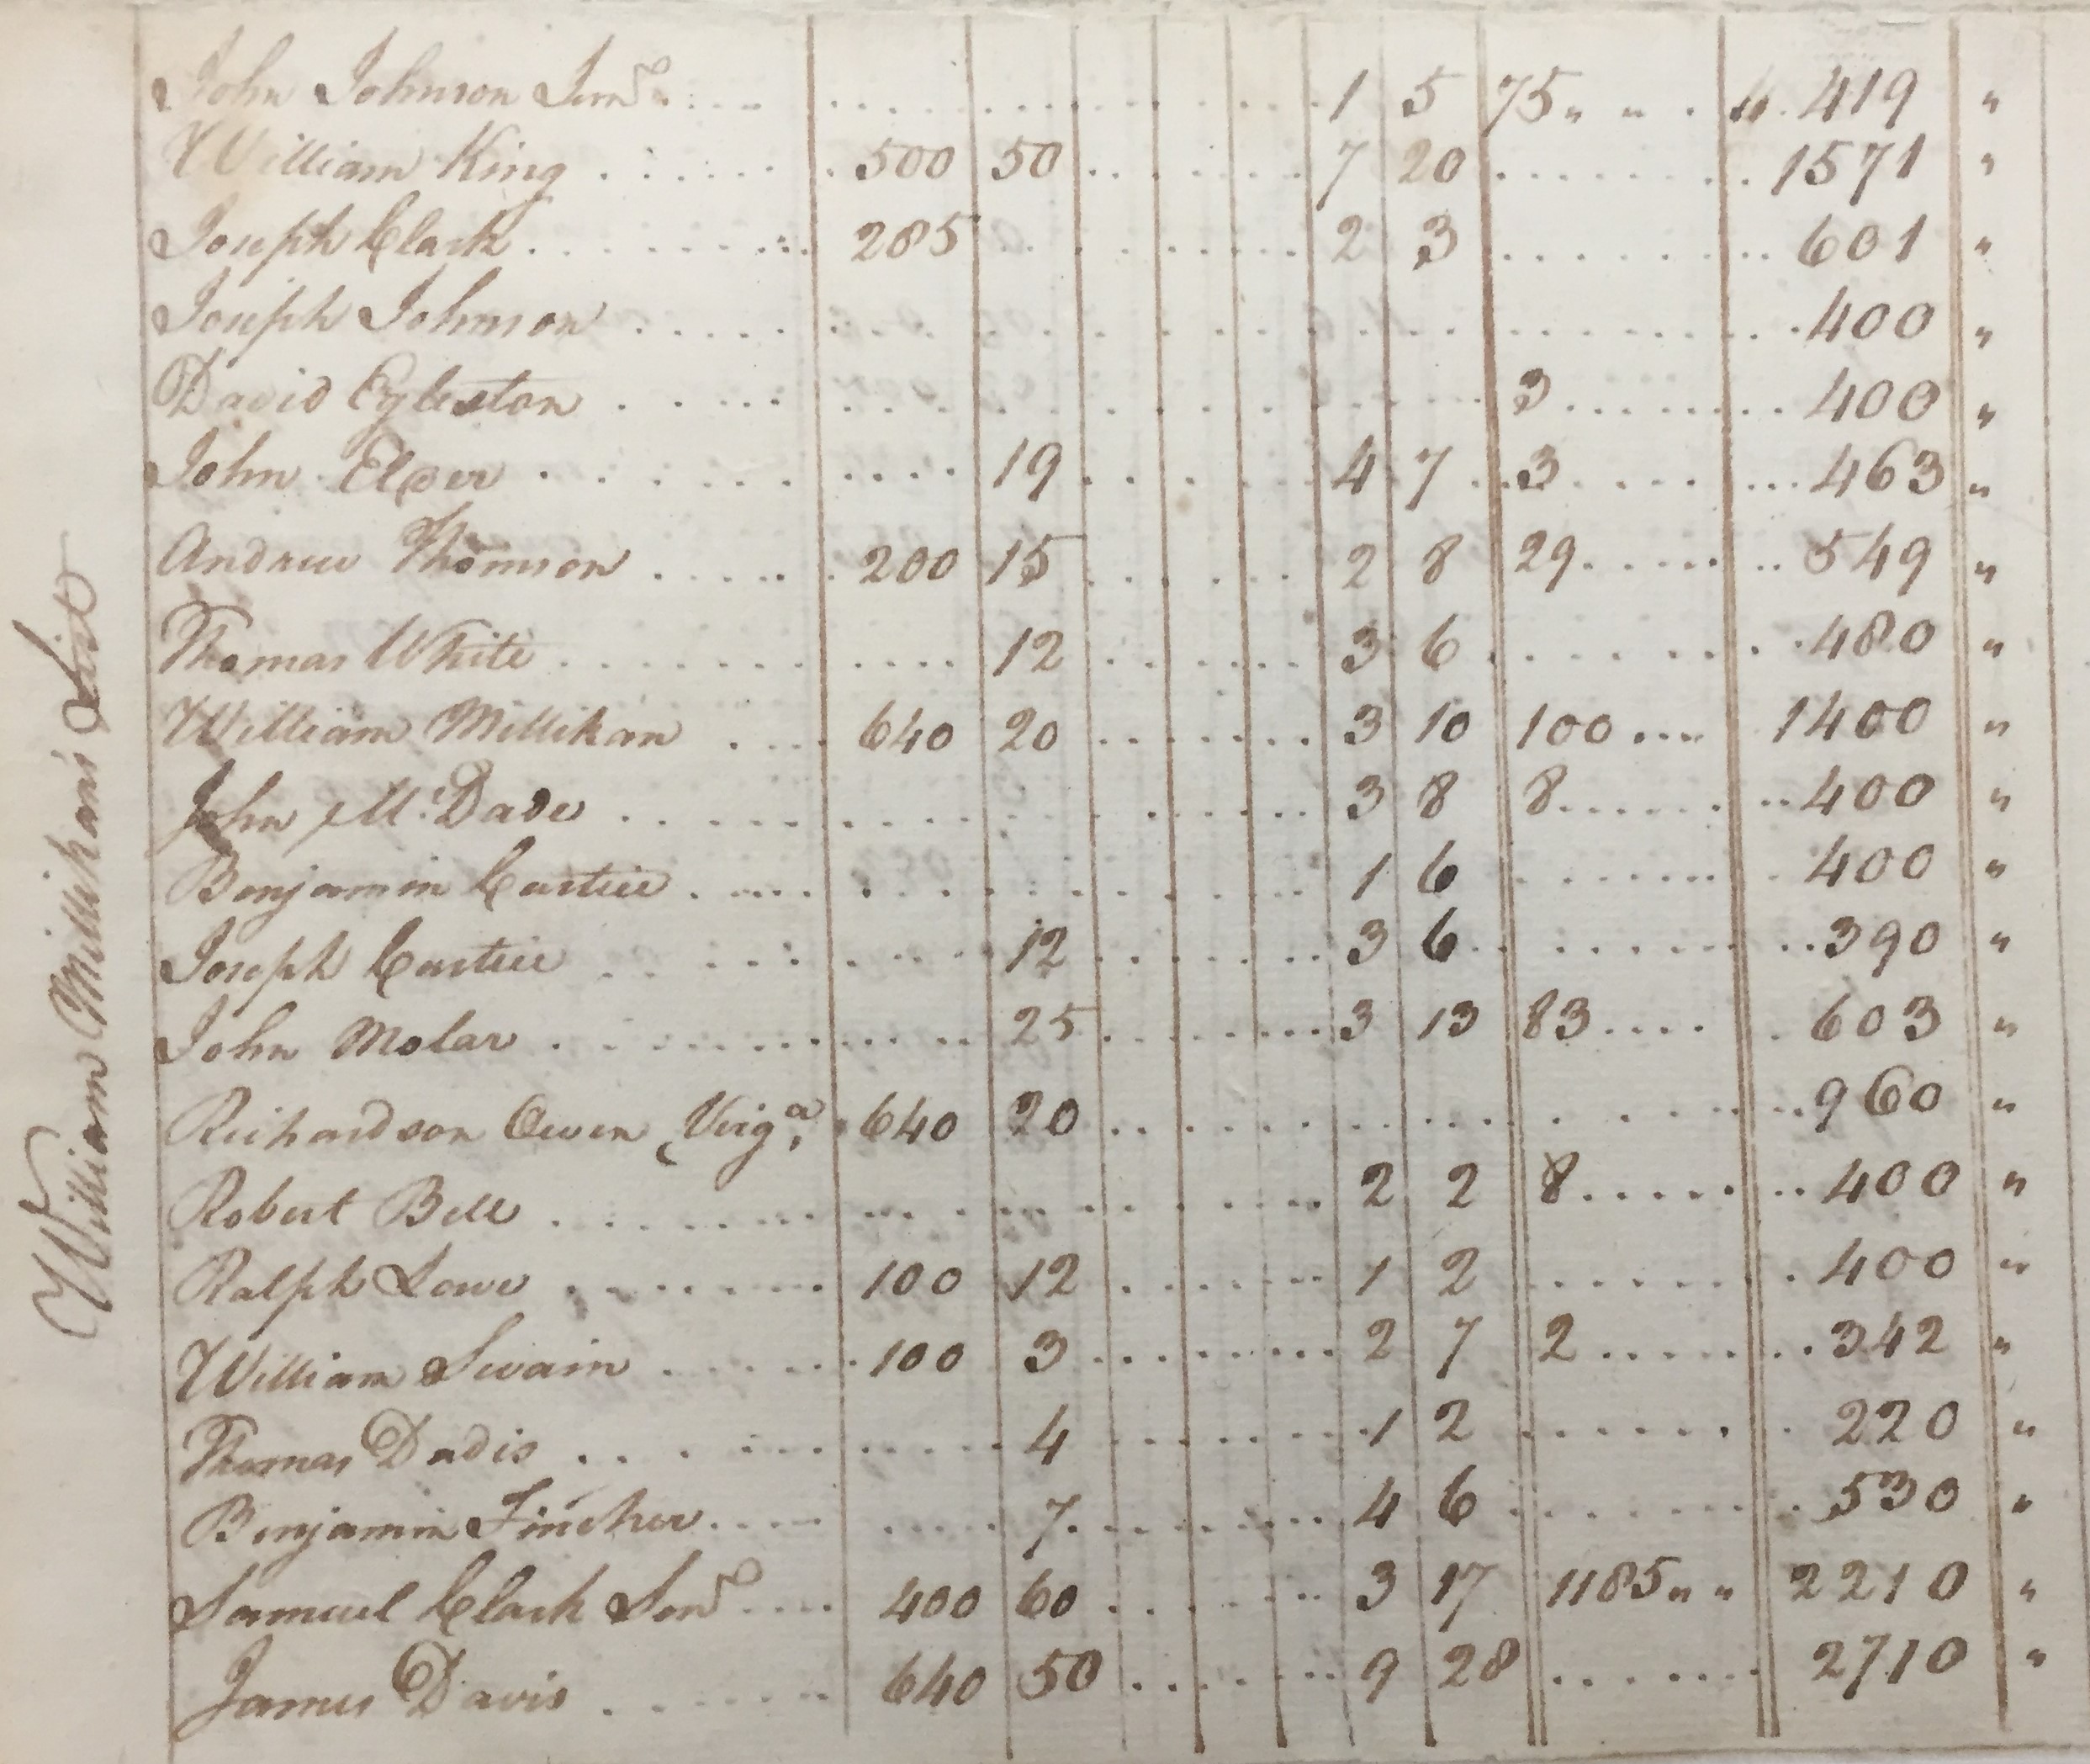 William Millikan's List
John Johnson Junr 1 5 75 " " 419 "
William King 500 50 7 20 1571 "
Joseph Clark 285 2 3 601 "
Joseph Johnson 400 "
David Egleston 3 400 "
John Elder 19 4 7 3 463 "
Andrew Thomson 200 15 2 8 29 549 "
Thomas White 12 3 6 480 "
William Millikan 640 20 3 10 100 1400 "
John Mc.Dade 3 8 8 400 "
Benjamin 1 6 400 "
Joseph 12 3 6 390 "
John Molar 25 3 13 83 603 "
Richardson Owen Virga. 640 20 960 "
Robert Bell 2 2 8 400 "
Ralph Lowe 100 12 1 2 400 "
William Swain 100 3 2 7 2 342 "
Thomas Dadis 4 1 2 220 "
Benjamin Fincher 7 4 6 530 "
Samuel Clark Senr 400 60 3 17 1185 " " 2210 "
James Davis 640 50 9 28 2710 "